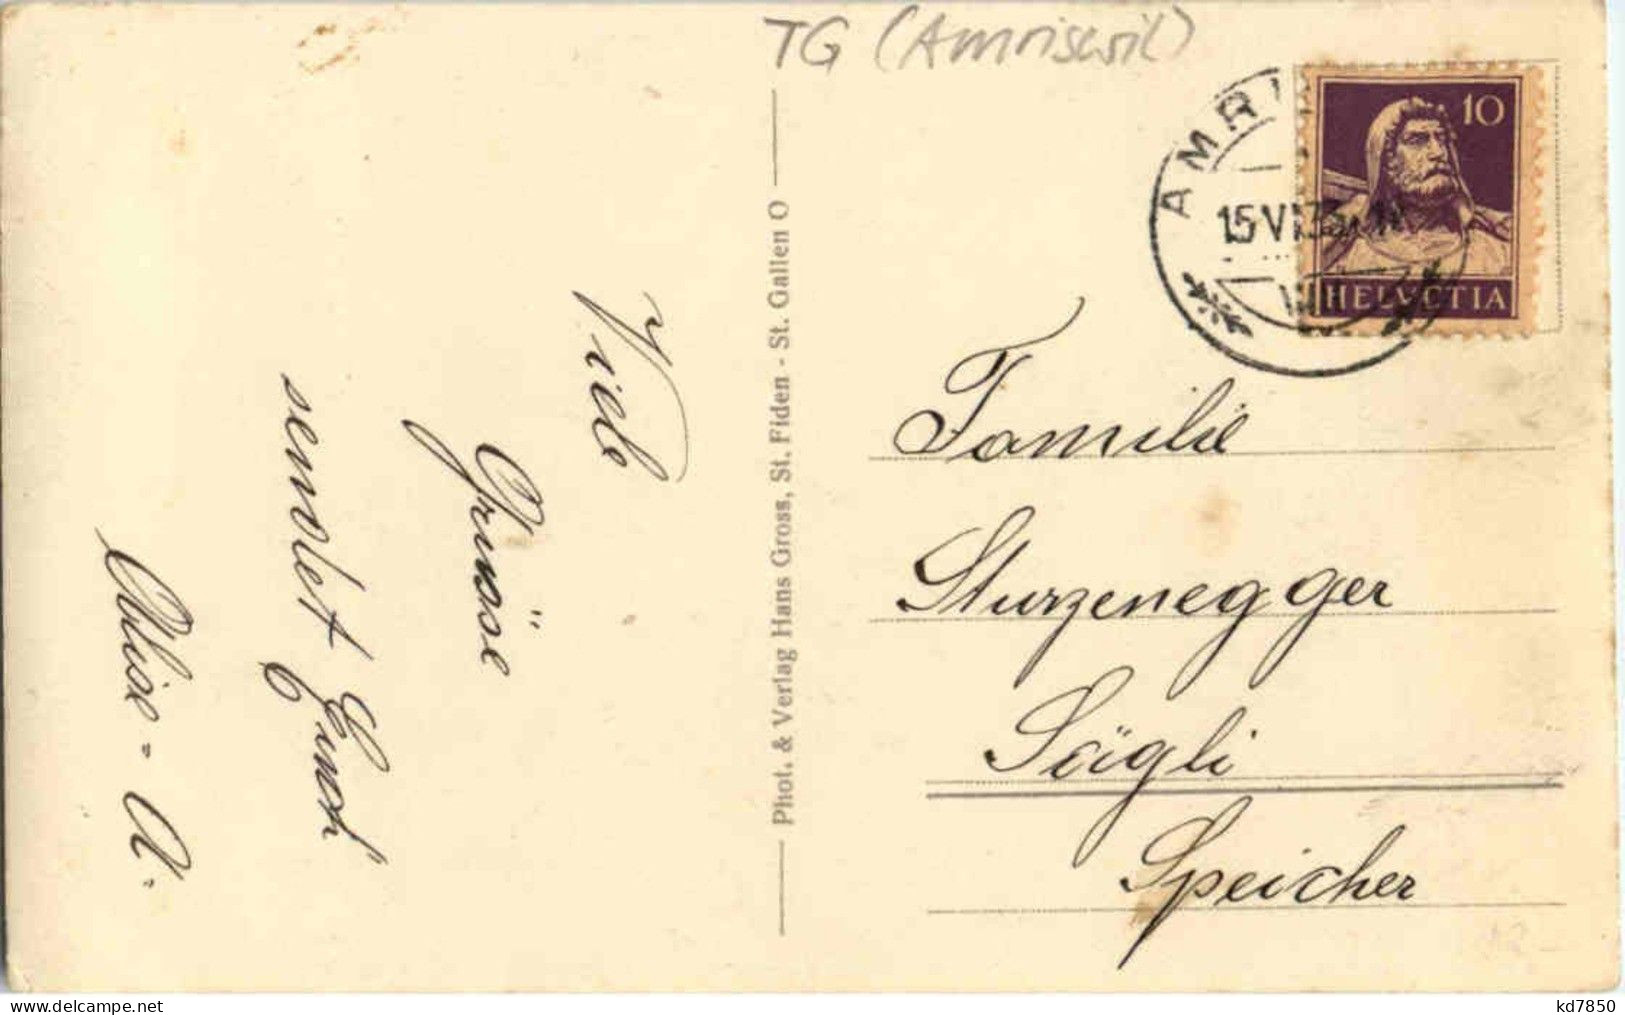 TG (Amriswil)
AMRI
15 VI 33
10
HELVETIA
Viele
Grüsse
sendet Euch
Alise = A.
Phot. & Verlag Hans Gross, St. Fiden - St. Gallen O
Familie
Sturzenegger
Sägli
Speicher
kd7850